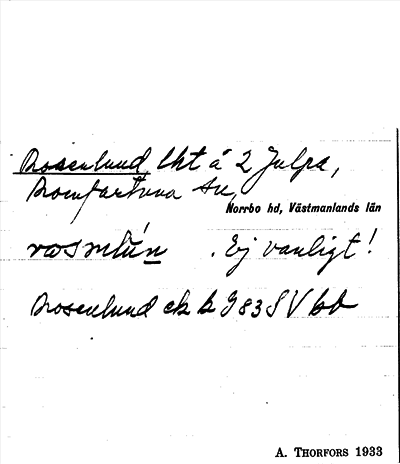 Rosenlund, lht å 2 Julpa,
Romfartuna sn,
Norrbo hd, Västmanlands län
rosnlún . Ej vanligt!
Rosenlund ek b J 83 SV bb
A. THORFORS 1933